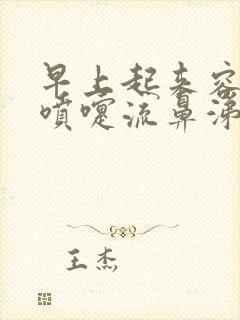 早上起来容
喷嚏流鼻涕
王杰